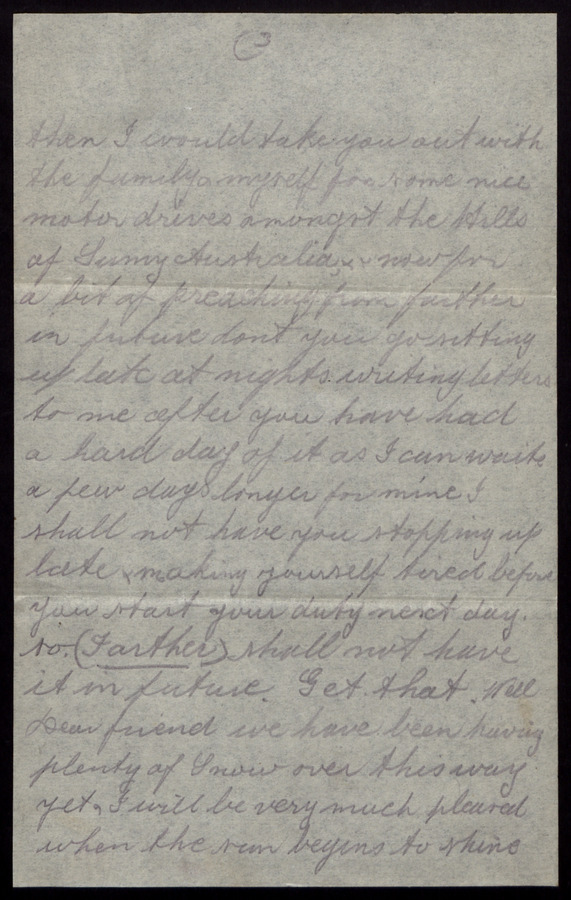 (3
then I would take you out with
the family & myself for some nice
motor drives amongst the Hills
of Sunny Australia, now for
a bit of preaching from farther
in future dont you go sitting
up late at nights. writing letters
to me after you have had
a hard day of it as I can waite
a few days longer for mine I
shall not have you stopping up
late & making yourself tired before
you start your duty next day.
so. (Farther) shall not have
it in future. Get that. Well
Dear friend we have been having
plenty of Snow over this way
yet & I will be very much pleased
when the sun begins to shine